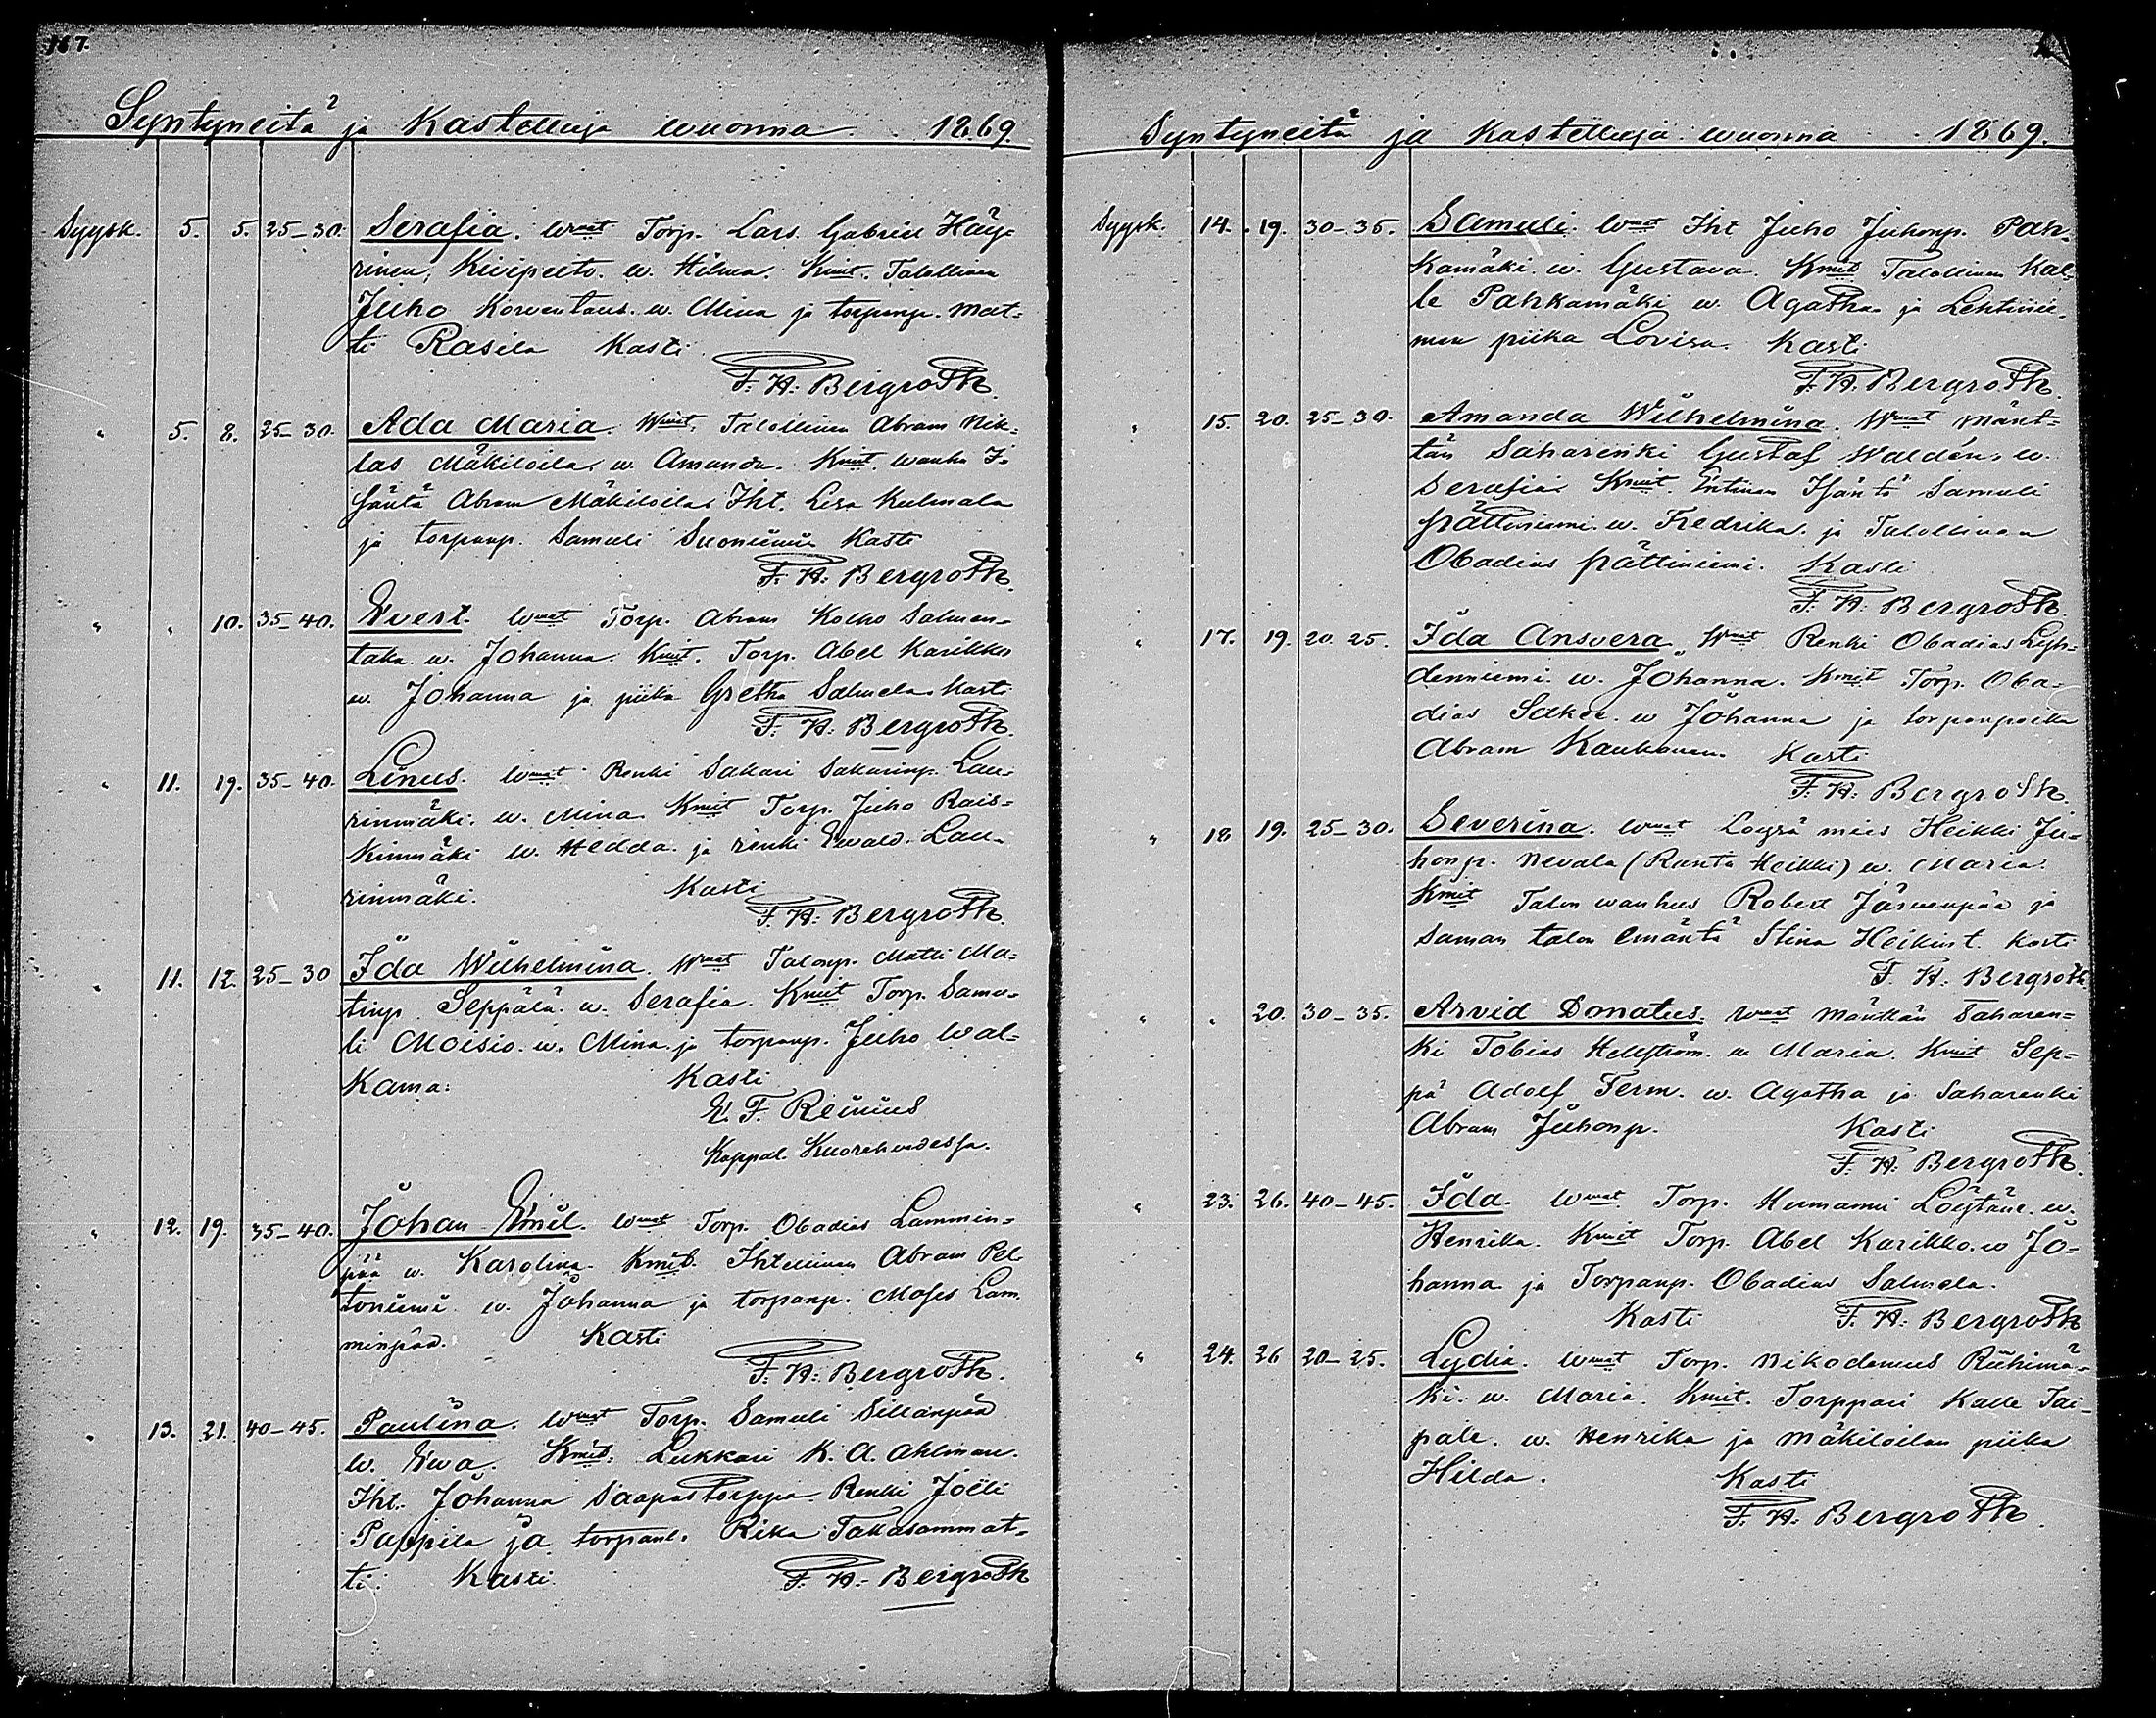 167.
Syntyneitä ja Kastettuja wuonna 1869.
Syysk. 5. 5. 25-30. Serafia. Wmat Torp. Lars Gabriel Häy-
rinen, Kivipelto. w. Hilma. Kmit. Talollinen
Juho Korventaus. w. Mina ja torpanp. Mat-
ti Rasila Kasti
F. H. Bergroth.
" 5. 8. 25-30. Ada Maria. Wmat. Talollinen Abram Nik-
las Mäkiloila. w. Amanda. Kmit. wanha I-
säntä Abram Mäkiloila. Iht. Lisa Kulmala
ja torpanp. Samuli Suoniemi Kasti
F. H. Bergroth.
" " 10. 35-40. Evert. Wmat Torp. Abram Kolho Salmen-
taka. w. Johanna. Kmit. Torp. Abel Karikko
w. Johanna ja piika Gretha Salmela. Kasti
F. H. Bergroth.
" 11. 19. 35-40. Linus. Wmat Renki Sakari Sakarinp. Lau-
rinmäki. w. Mina. Kmit Torp. Juho Rais-
kinmäki w. Hedda. ja renki Ewald. Lau-
rinmäki. Kasti
F. H. Bergroth.
" 11. 12. 25-30 Ida Wilhelmina. Wmat Talonp. Matti Ma-
tinp. Seppälä. w. Serafia. Kmit Torp. Samu-
li Moisio. w. Mina. ja torpanp. Juho Wal-
kama. Kasti
E. F. Reinius
Kappal. Kuorehwedessä.
" 12. 19. 35-40. Johan Emil. Wmat Torp. Obadias Lammin-
pää w. Karolina. Kmit. Ihtellinen Abram Pel-
toniemi. w. Johanna ja torpanp. Moses Lam-
minpää. Kasti
F. H. Bergroth.
" 13. 21. 40-45. Paulina. Wmat Torp. Samuli Sillanpää
w. Ewa. Kmit. Lukkari K. A. Ahlman.
Iht. Johanna Saapastorppa. Renki Joëli
Pappila ja torpant. Rika Takasammat-
ti. Kasti.
F. H. Bergroth
Syntyneitä ja Kastettuja wuonna 1869.
Syysk. 14. 19. 30-35. Samuli. Wmat Iht Juho Juhonp. Pah-
kamäki. w. Gustava. Kmit Talollinen Kal-
le Pahkamäki w. Agatha ja Lehtinie-
men piika Lovisa. Kasti
F. H. Bergroth.
" 15. 20. 25-30. Amanda Wilhelmina. Wmat Mänt-
tän Saharenki Gustaf Waldén. w.
Serafia. Kmit. Entinen Isäntä Samuli
Pättiniemi. w. Fredrika. ja Talollinen
Obadias Pättiniemi. Kasti
F. H. Bergroth.
" 17. 19. 20. 25. Ida Ansvera. Wmat Renki Obadias Lyh-
denniemi. w. Johanna. Kmit Torp. Oba-
dias Sakoe. w Johanna ja torpanpoika
Abram Kaukonen. Kasti
F. H. Bergroth.
" 18 19. 25-30. Severina. Wmat Loysä mies Heikki Ju-
honp. Nevala (Ranta Heikki) w. Maria.
Kmit Talon wanhus Robert Järvenpää ja
Saman talon emäntä Stina Heikint. Kasti
F. H. Bergroth
" " 20. 30-35. Arvid Donatus. Wmat Mänttän Saharen-
ki Tobias Hellström. w. Maria. Kmit Sep-
pä Adolf Ferm. w. Agatha ja Saharenki
Abram Juhonp. Kasti
F. H. Bergroth.
" 23. 26. 40-45. Ida. Wmat Torp. Hermanni Löytäne. w.
Henrika. Kmit Torp. Abel Karikko. w Jo-
hanna ja Torpanp. Obadias Salmela.
Kasti F. H. Bergroth
" 24. 26 20-25. Lydia. Wmat Torp. Nikodemus Riihimä-
ki. w. Maria. Kmit. Torppari Kalle Tai-
pale. w. Henrika ja Mäkiloilan piika
Hilda. Kasti
F. H. Bergroth.